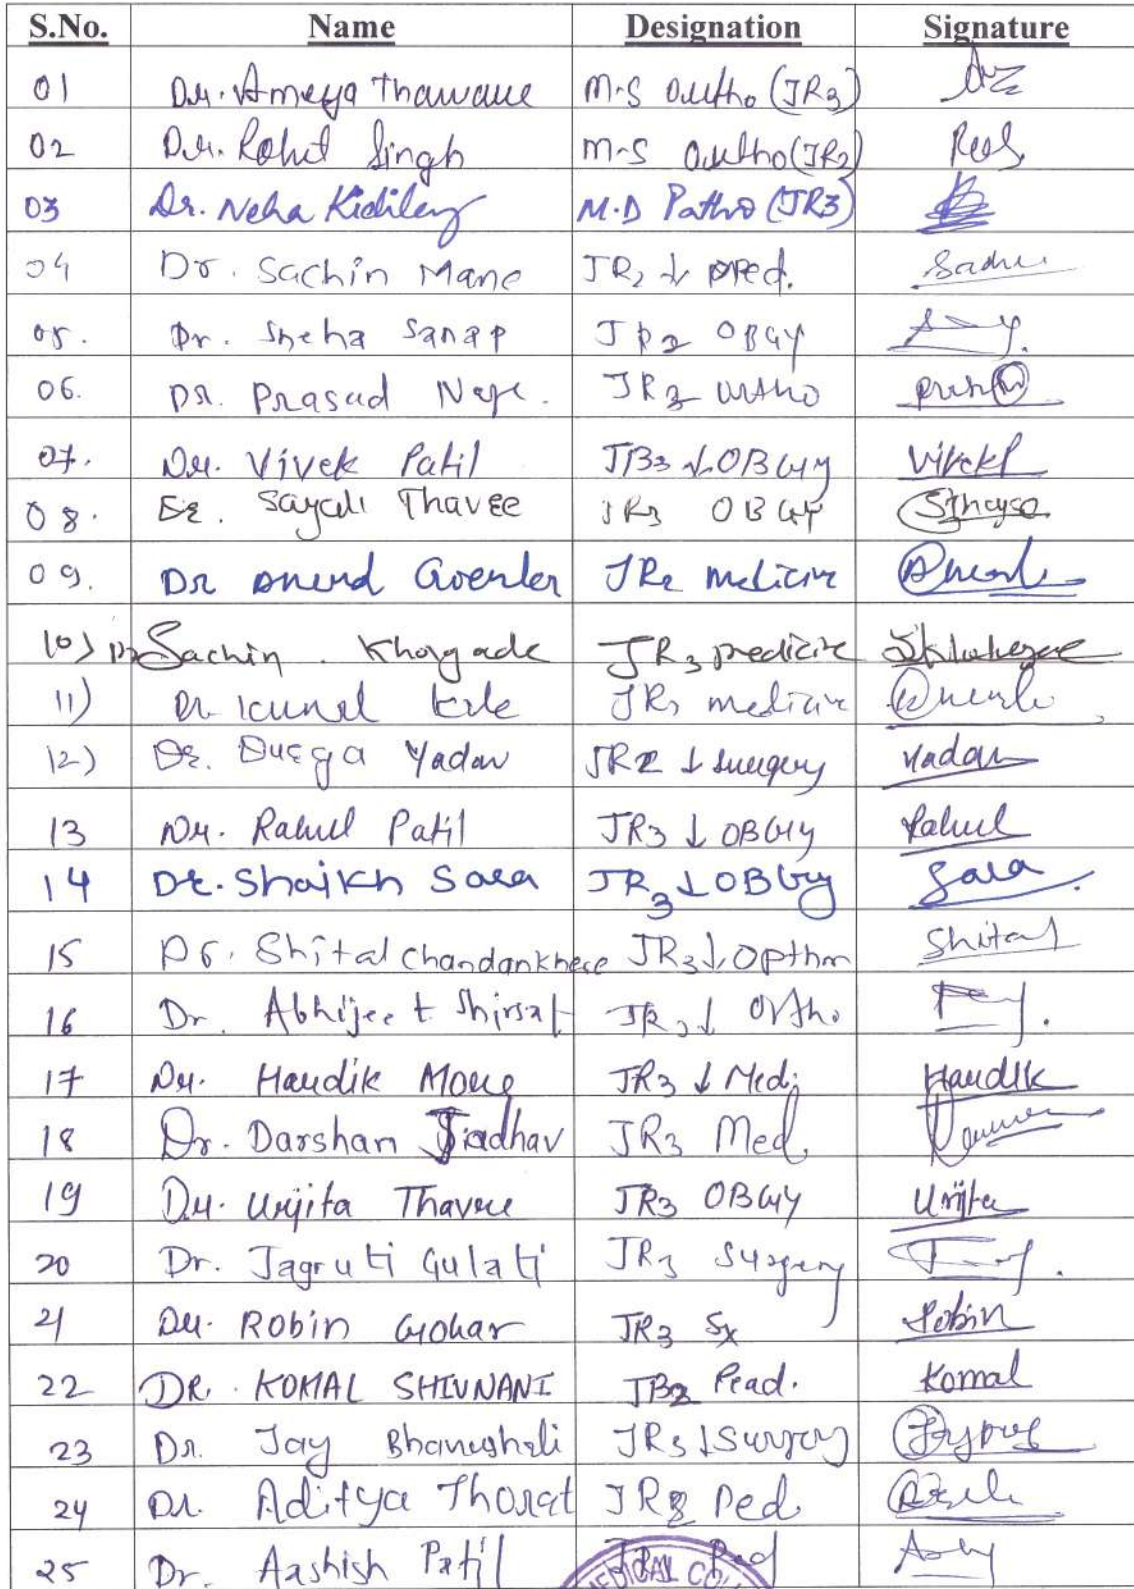 S.No. Name Designation Signature
01 Dr. Ameya Thawane M.S Ortho (JR3)
02 Dr. Rohit Singh M.S Ortho (JR2)
03 Dr. Neha M.D Patho (JR3)
04 Dr. Sachin Mane JR2 ↓ Med.
05. Dr. Sneha Sanap JR2 OBGY
06. DR. Prasad JR3 Ortho
07. Dr. Vivek Patil JR3 ↓ OBGY VivekP
08. Dr. Sayali Thavre JR3 OBGY
09. DR JR2 medicine
10) Dr Sachin . Khargade JR3 medicine
11) Dr. Kunal JR3 medicine
12) Dr. Durga Yadav JR2 ↓ Surgery Yadav
13 Dr. Rahul Patil JR3 ↓ OBGY Rahul
14 Dr. Shaikh Sara JR3 ↓ OBGY Sara
15 Dr. Shital Chandankhere JR3 ↓ Opthm Shital
16 Dr. Abhijeet Shirsat JR3 ↓ Ortho
17 Dr. Hardik More JR3 ↓ Med. Hardik
18 Dr. Darshan Jadhav JR3 Med.
19 Dr. Urjita Thavre JR3 OBGY Urjita
20 Dr. Jagruti Gulati JR3 Surgery
21 Dr. Robin Gohar JR3 Sx Robin
22 DR. KOMAL SHIVNANI JR2 Pead. Komal
23 Dr. Jay Bhanushali JR3 ↓ Surgery
24 Dr. Aditya Thorat Ped.
25 Dr. Aashish Patil
MEDICAL